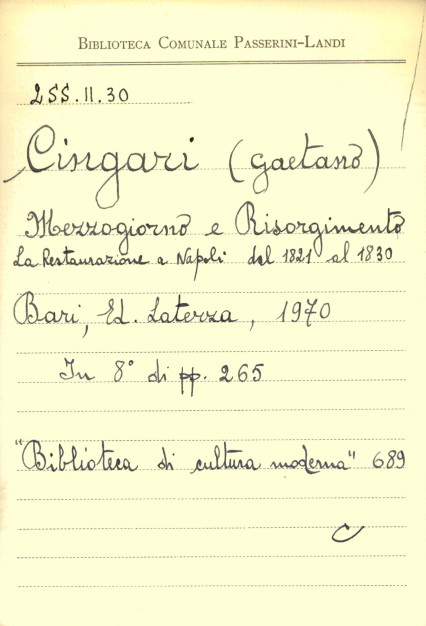 BIBLIOTECA COMUNALE PASSERINI-LANDI
2SS.II.30
Cingari (Gaetano)
Mezzogiorno e Risorgimento
La Restaurazione a Napoli dal 1821 al 1830
Bari, Ed. Laterza, 1970
In 8° di pp. 265
"Biblioteca di cultura moderna" 689
C